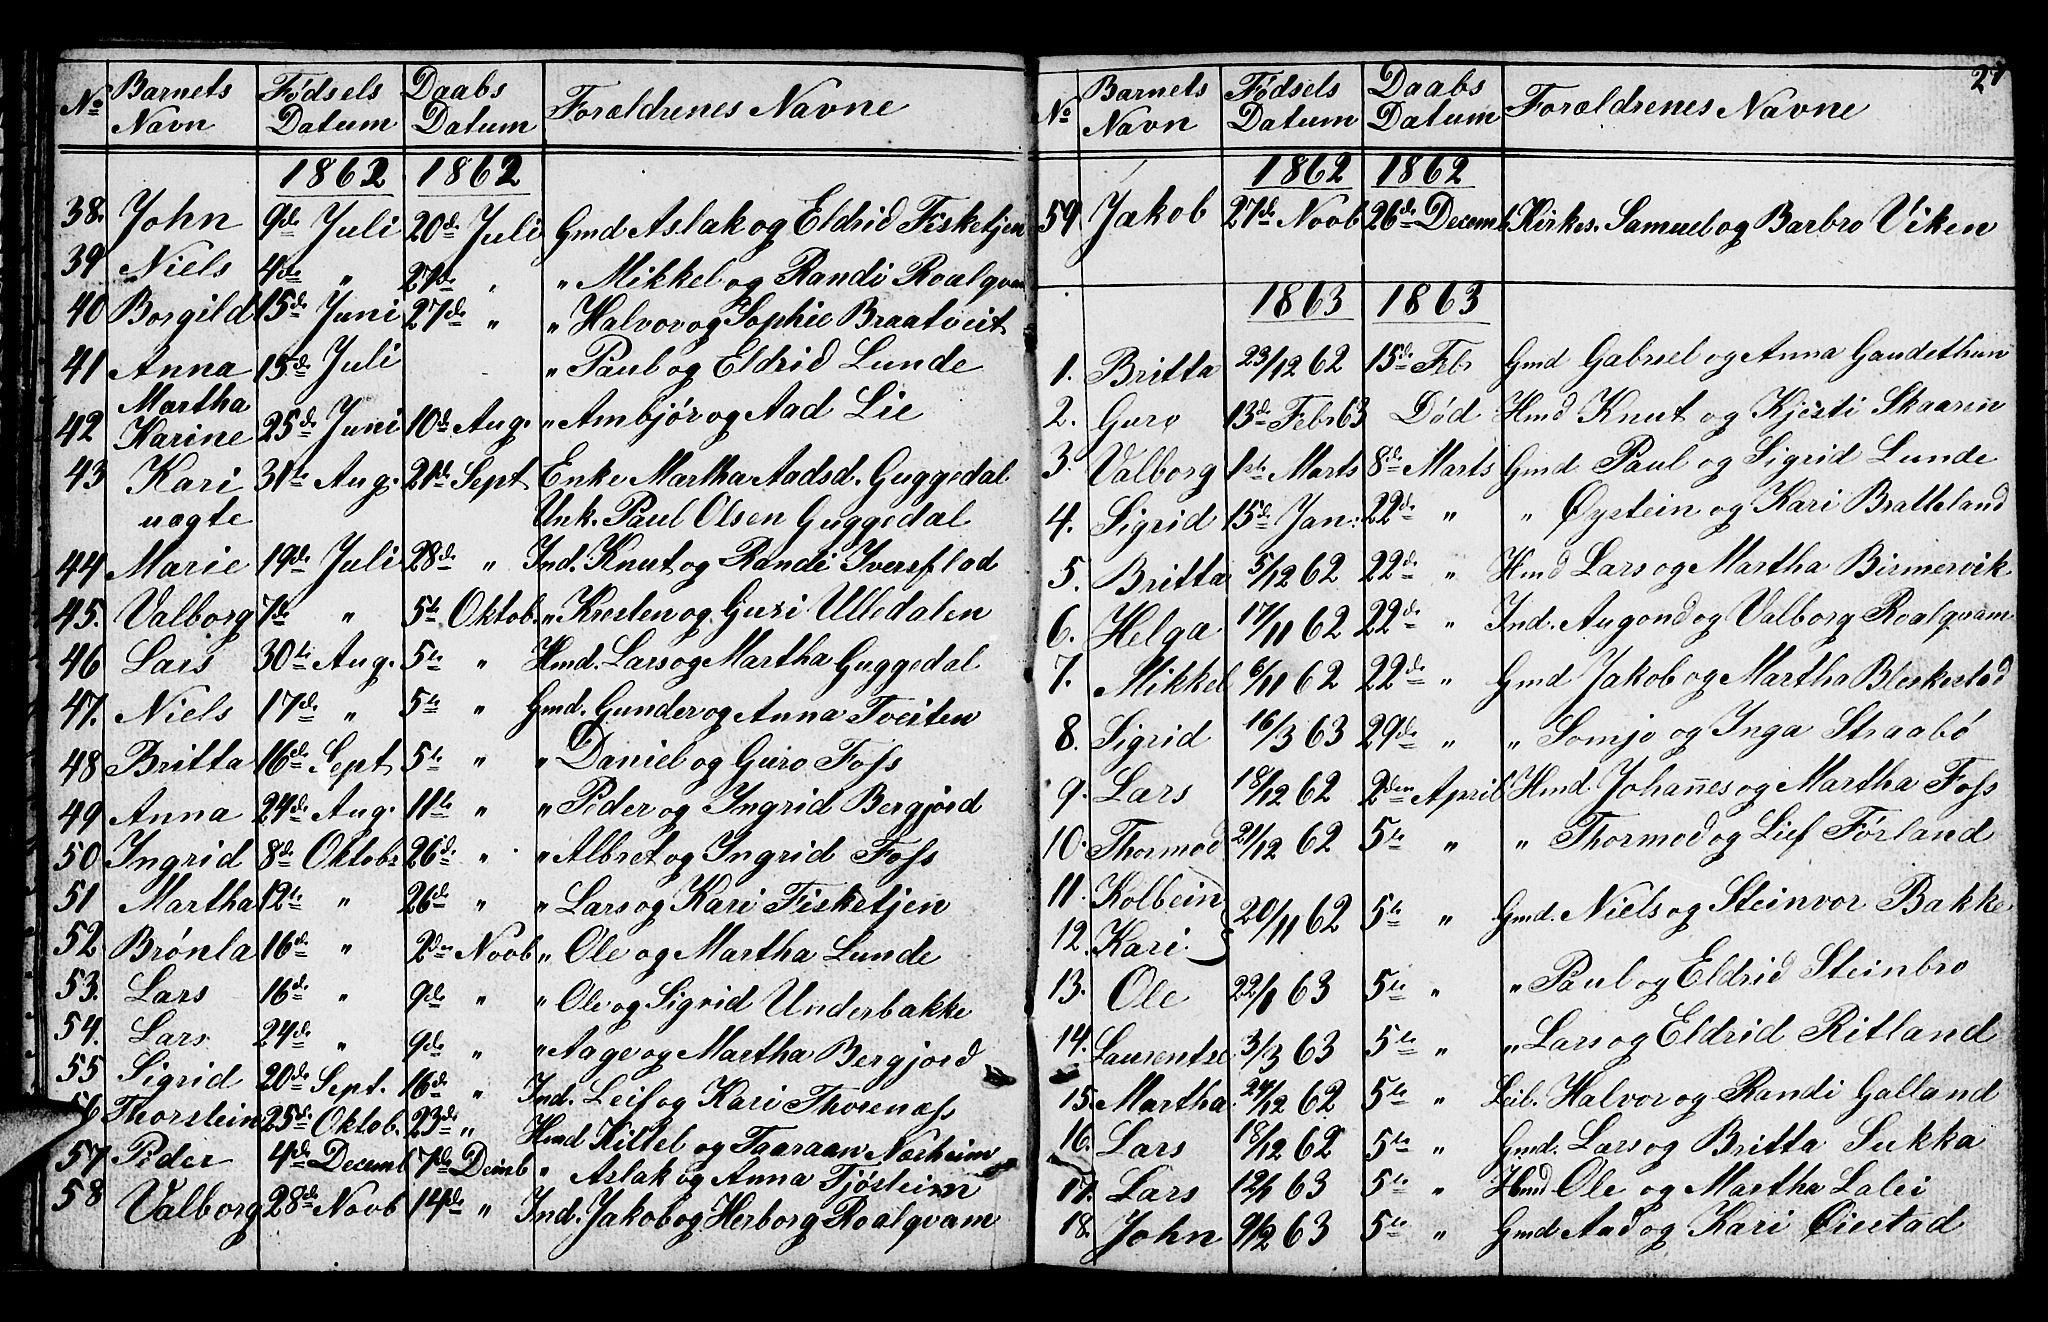 No Barnets Navn Fødsels Datum Daabs Datum Forældrenes Navne
1862 1862
38. John 9de Juli 20de Juli Gmd Aslak og Eldrid Fisketjen
39 Niels 4de " 27de " " Mikkel og Randi Roalqvam
40 Borgild 15de Juni 27de " " Halvor og Sophie Braatveit
41 Anna 15de Juli " Paul og Eldrid Lunde
42 Martha Karine 25de Juni 10de Aug. " Ambjør og Aad Lie
43 Kari 31te Aug. 21de Sept Enke Martha Aadsd. Guggedal
uægte Unk. Paul Olsen Guggedal
44 Marie 19de Juli 28de " Ind. Knut og Randi Iversflod
45. Valborg 7de " 5te Oktob. " Kresten og Guri Ulledalen
46 Lars 30te Aug. 5te " Hmd. Lars og Martha Guggedal
47. Niels 17de " 5te " Gmd. Gunder og Anna Tveiten
48 Britta 16de Sept 5te " " Daniel og Guro Foss
49 Anna 24de Aug. 11te " " Peder og Ingrid Bergjord
50 Ingrid 8de Oktobr 26de " " Albret og Ingrid Foss
51 Martha 12te " 26de " " Lars og Kari Fisketjen
52. Brønla 16de " 2den Novb " Ole og Martha Lunde
53. Lars 16de " 9de " " Ole og Sigrid Underbakke
54. Lars 24de " 9de " " Aage og Martha Bergjord
55 Sigrid 20de Sept. 16de " Ind. Leif og Kari Thorenass
56 Thorstein 25de Oktob. 23de " Hmd Kittel og Taaraan Næsheim
57 Peder 4de Decemb 7de Demb " Aslak og Anna Fjøsteim
58 Valborg 28de Novb 14de " Ind. Jakob og Herborg Roalqvam
27
No Barnets Navn Fødsels Datum Daabs Datum Forældrenes Navne
1862 1862
59 Jakob 27de Novb 26de Decemb Kirkes. Samuel og Barbro Viken
1863 1863
1. Britta 23/12 62 15de Febr Gmd Gabriel og Anna Gaudethun
2. Guro 13de Febr 63 Død Hmd Knut og Kjersti Skaarin
3. Valborg 1ste Marts 8de Marts Gmd Paul og Sigrid Lunde
4. Sigrid 15de Jan: 22de " " Øystein og Kari Bratteland
5. Britta 5/12 62 22de " Hmd Lars og Martha Birmervik
6. Helga 17/11 62 22de " Ind. Augond og Valborg Roalqvam
7. Mikkel 6/11 62 22de " Gmd Jakob og Martha Bleskestad
8. Sigrid 16/3 63 29de " " Somje og Inga Straabø
9. Lars 18/12 62 2den April Hmd. Johannes og Martha Foss
10. Thormod 21/12 62 5te " " Thormod og Lief Førland
11. Kolbein
12. Kari. 20/11 62 5te " Gmd. Niels og Steinvor Bakke
13. Ole 22/1 63 5te " " Paul og Eldrid Steinbro
14. Laurentse 3/3 63 5te " " Lars og Eldrid Ritland
15. Martha 27/12 62 5te " Leil. Halvor og Randi Galland
16. Lars 18/12 62 5te " Gmd. Lars og Britta Sukka
17. Lars 12/1 63 5te " Hmd Ole og Martha Lalei
18. John 9/2 63 5te " Gmd Aad og Kari Øiestad